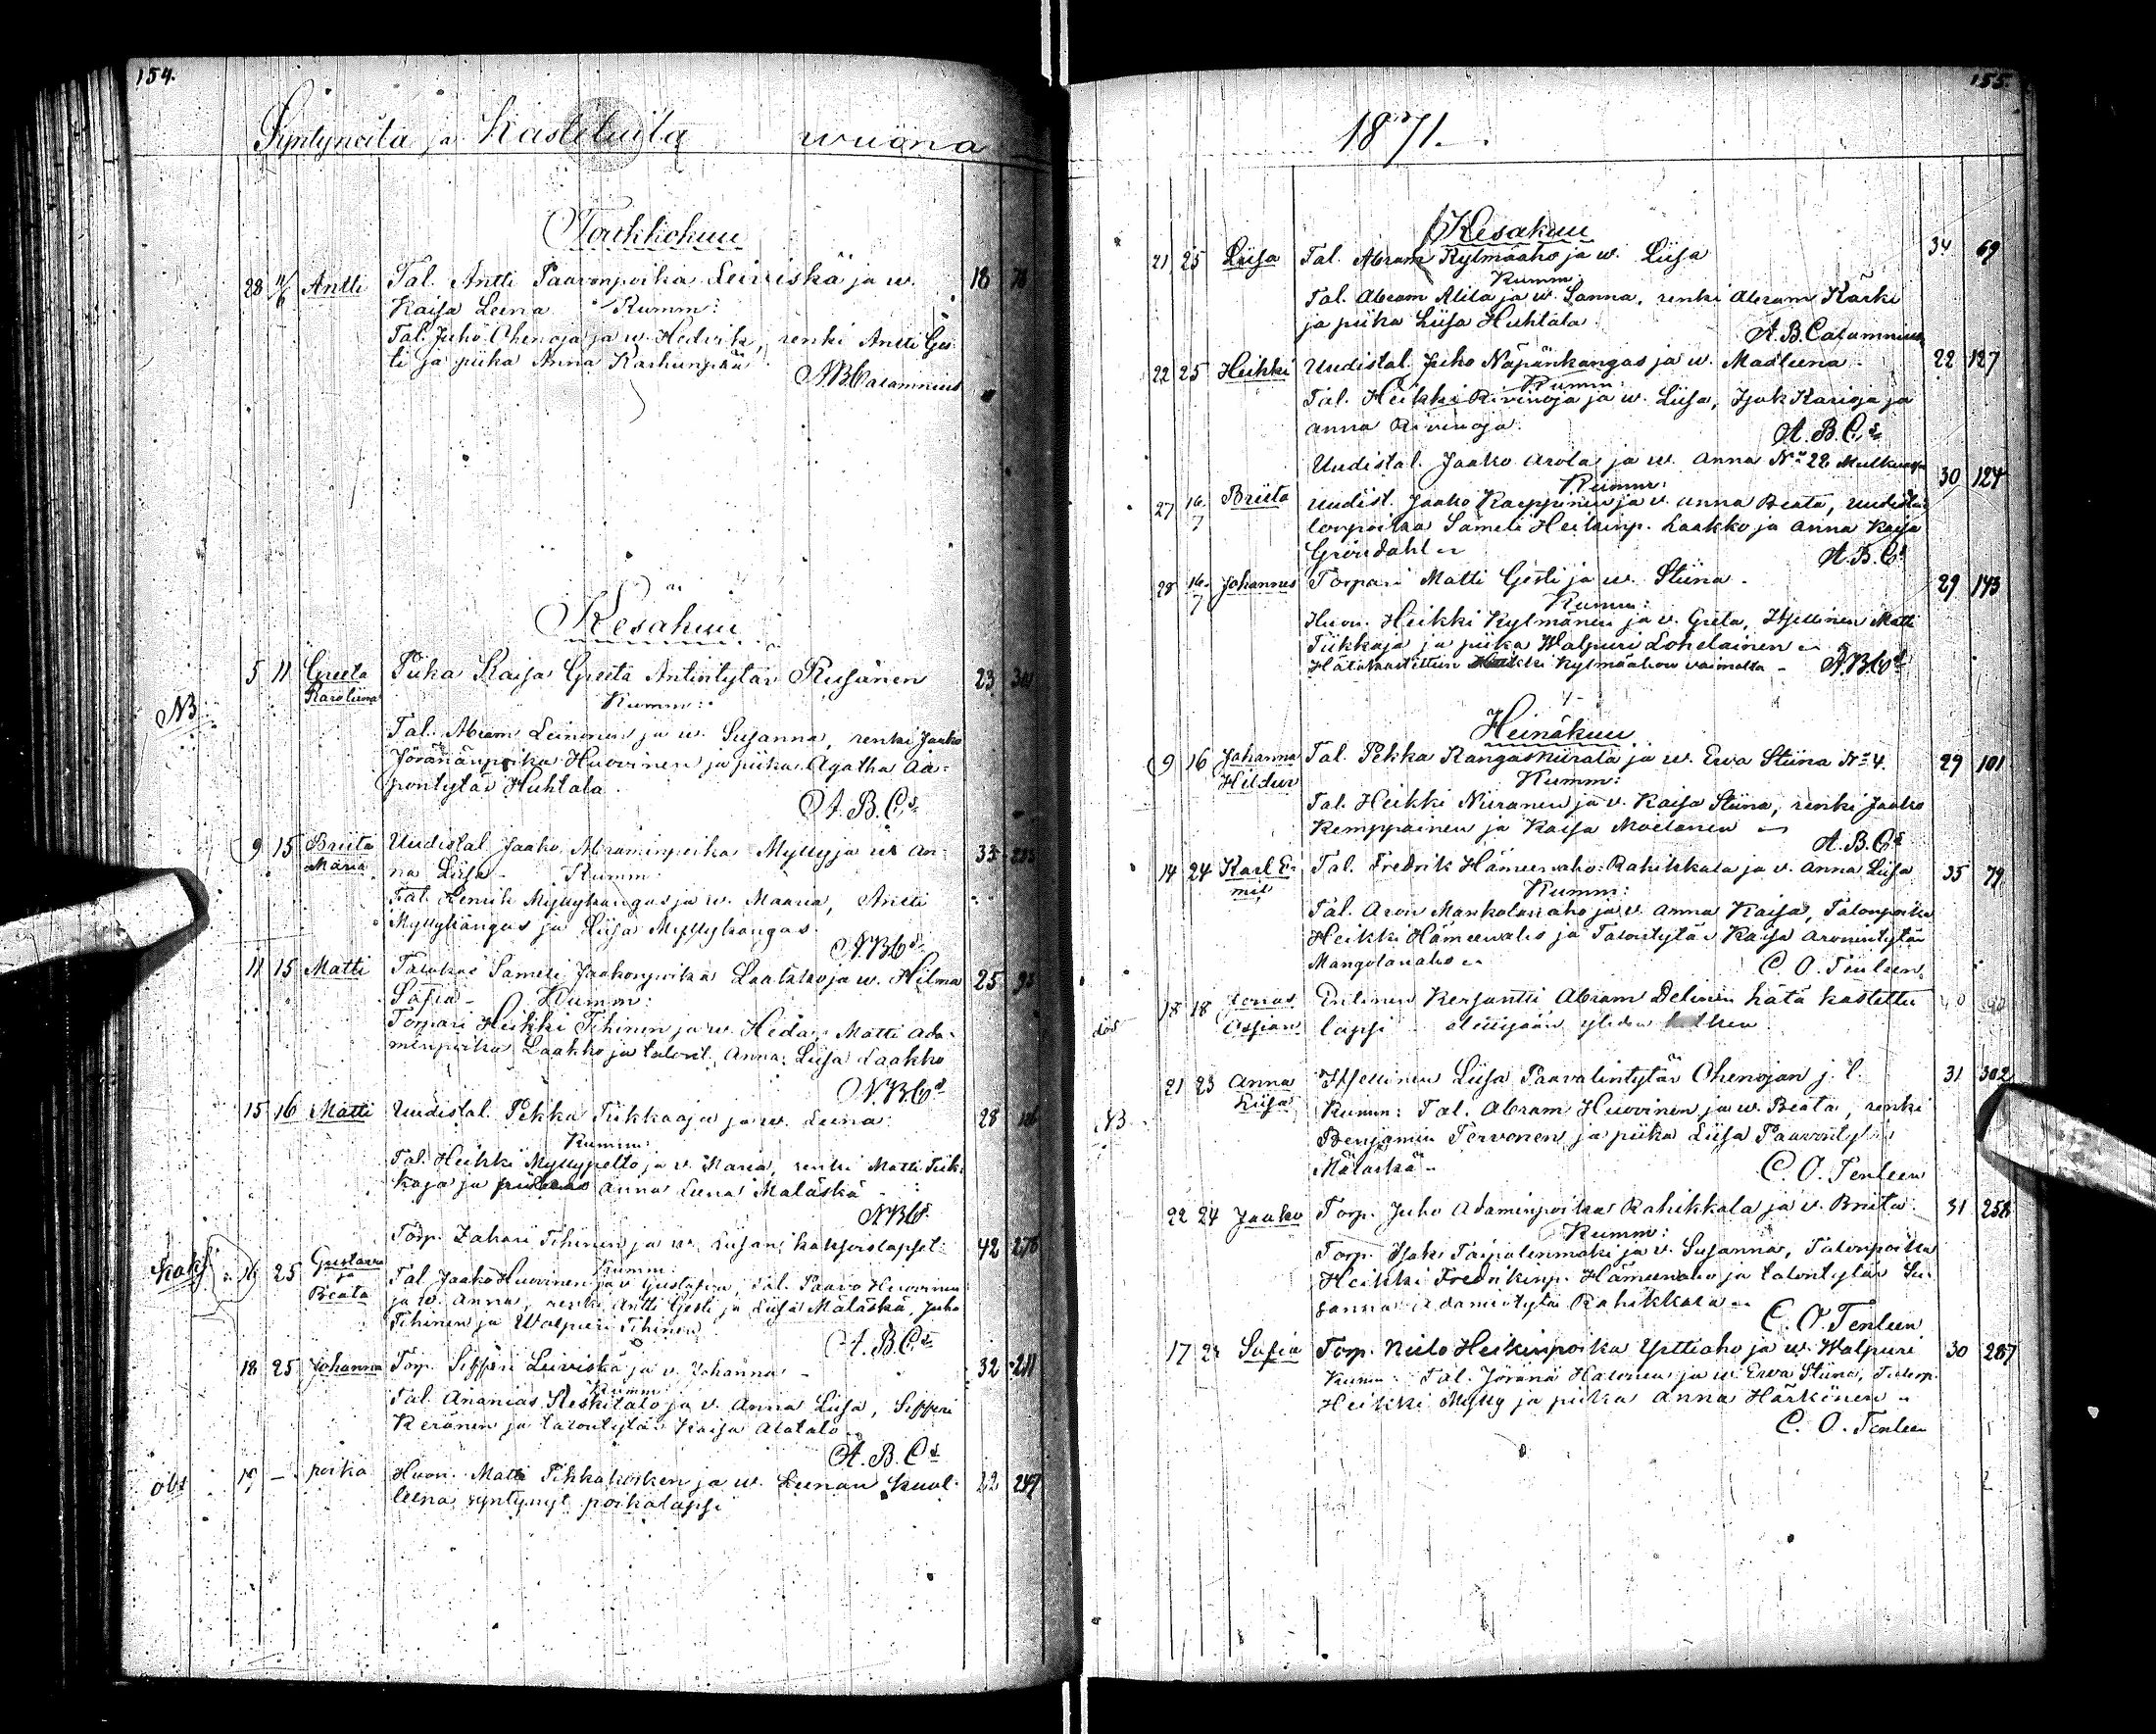 154.
Syntyneitä ja Kastetuita wuona
Toukokuu
28 11/6 Antti Tal. Antti Paavonpoika Leiviskä ja w. 18
Kaisa Leena Kumm:
Tal. Juho Ohenoja ja w. Hedvik, renki Antti Ges-
ti ja piika Anna Karhunpää
A.B. Calamnius
Kesäkuu
NB
5 11 Greeta Karoliina Piika Kaisa Greeta Antintytär Rusänen 23
Kumm:
Tal. Abram Leinonen ja w. Susanna, renki Jaako
Jöränänpoika Huovinen ja piika Agatha Aa-
pontytär Huhtala.
A. B. C:s
9 15 Briita Maria Uudistal. Jaako Abraminpoika Mylly ja w. An- 33
na Liisa Kumm:
Tal. Henrik Myllykangas ja w. Maaria, Antti
Myllykangas ja Liisa Myllykangas.
A.B.C:s
11 15 Matti Talokas Sameli Jaakonpoika Laakko ja w. Hilma 25
Sofia - Kumm:
Torpari Heikki Tihinen ja w. Heda, Matti Ada-
minpoika Laakko ja talont. Anna Liisa Laakko
A.B.C:s
15 16 Matti Uudistal. Pekka Tiikkaaja ja w. Leena 28
Kumm:
Tal. Heikki Myllypelto ja v. Maria, renki Matti Tiik-
kaja ja Anna Leena Maläskä
A.B.C:s
Torp. Zakari Tihinen ja w. Liisan kaksoislapset 42 278
Kaks 16 25 Gustaava ja Beata Kumm:
Tal. Jaako Huovinen ja v. Gustava, Tal. Paavo Huovinen
ja w. Anna, renki Antti Gesti ja Liisa Mäläskä, Juho
Tihinen ja Walpuri Tihinen
A.B.C:s
18 25 Johanna Torp. Sipperi Leiviskä ja v. Johanna - 32 211
Kumm:
Tal. Ananias Keskitalo ja v. Anna Liisa, Sipperi
Keränen ja talontytär Kaisa Alatalo
A. B. C:s
obs - poika Huon. Matti Pihkakosken ja w. Leenan kuol- 22 247
leena syntynyt poikalapsi
155.
1871.
Kesäkuu
21 25 Liisa Tal. Abram Kylmäaho ja w. Liisa 34 69
Kumm:
Tal. Abram Alila ja w. Sanna, renki Abram Kärki
ja piika Liisa Huhtala
A.B. Calamnius
22 25 Heikki Uudistal. Juho Näpänkangas ja w. Madleena 22 127
Kumm:
Tal. Heikki Rivinoja ja w. Liisa, Isak Karioja ja
Anna Rivinoja.
A. B. C:s
Uudistal. Jaako Arola ja w. Anna No 22 30 124
Kumm:
27 16/7 Briita Uudist. Jaako Kaeppinen ja v. Anna Beata, Uudista-
lonpoika Sameli Heikinp. Laakko ja Anna Kaisa
Gröndahl
A. B. C:s
28 16/7 Johannes Torpari Matti Gesti ja w. Stiina - 29 143
Kumm:
Huon. Heikki Kylmänen ja v. Greta, Itsellinen Matti
Tiikkaja ja piika Walpuri Lohelainen
Hätäkastettiin Heikki Kylmäahon vaimolta - A.B.C:s
Heinäkuu
9 16 Johanna Hildur Tal. Pekka Kangaskiirala ja w. Ewa Stiina No 4. 29 101
Kumm:
Tal. Heikki Niiranen ja v. Kaisa Stiina, renki Jaako
Kemppainen ja Kaisa Moilanen
A. B. C:s
14 24 Karl E- mil Tal. Fredrik Hämeenaho Rahikkala ja v. Anna Liisa 35 79
Kumm:
Tal. Aron Mankolanaho ja v. Anna Kaisa, Talonpoika
Heikki Hämeenaho ja Talontytär Kaisa Aronintytär
Mangolanaho
C. O. Tenleen
18 18 Entinen Kersantti Abram Delinin hätä kastettu
lapsi
NB 21 23 Anna Liisa Itsellinen Liisa Paavalintytär Ohenojan j. l. 31 302
Kumm: Tal. Abram Huovinen ja w. Beata, renki
Benjamin Tervonen ja piika Liisa Paavontytär
Mäläskä
C. O. Tenleen
22 24 Jaako Torp. Juho Adaminpoika Rahikkala ja v. Briita 31 258
Kumm:
Torp. Isak Taipalenmäki ja v. Susanna, Talonpoika
Heikki Fredrikinp. Hämeenaho ja talontytär Su-
sanna Adamintytär Rahikkala
C. O. Tenleen
17 Sofia Torp. Niilo Heikinpoika Yrttiaho ja w. Walpuri 30 287
Kumm: Tal. Jöränä Halonen ja w. Ewa Stiina,
Heikki Mylly ja piika Anna Härkönen
C. O. Tenleen